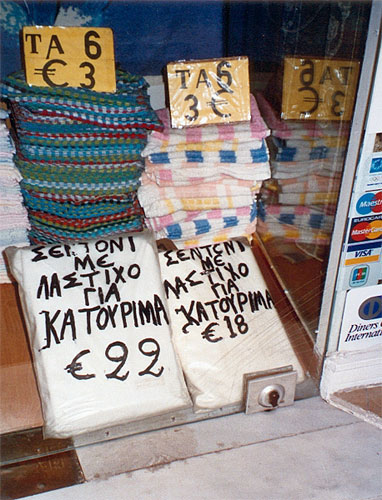 ΤΑ 6
€ 3
ΤΑ 6
3 €
ΤΑ 6
3 €
ΣΕΝΤΟΝΙ
ΜΕ
ΛΑΣΤΙΧΟ
ΓΙΑ
ΚΑΤΟΥΡΙΜΑ
€ 22
ΣΕΝΤΟΝΙ
ΜΕ
ΛΑΣΤΙΧΟ
ΓΙΑ
ΚΑΤΟΥΡΙΜΑ
€ 18
Maestro
EUROCARD
MasterCard
VISA
Diners C
Internat